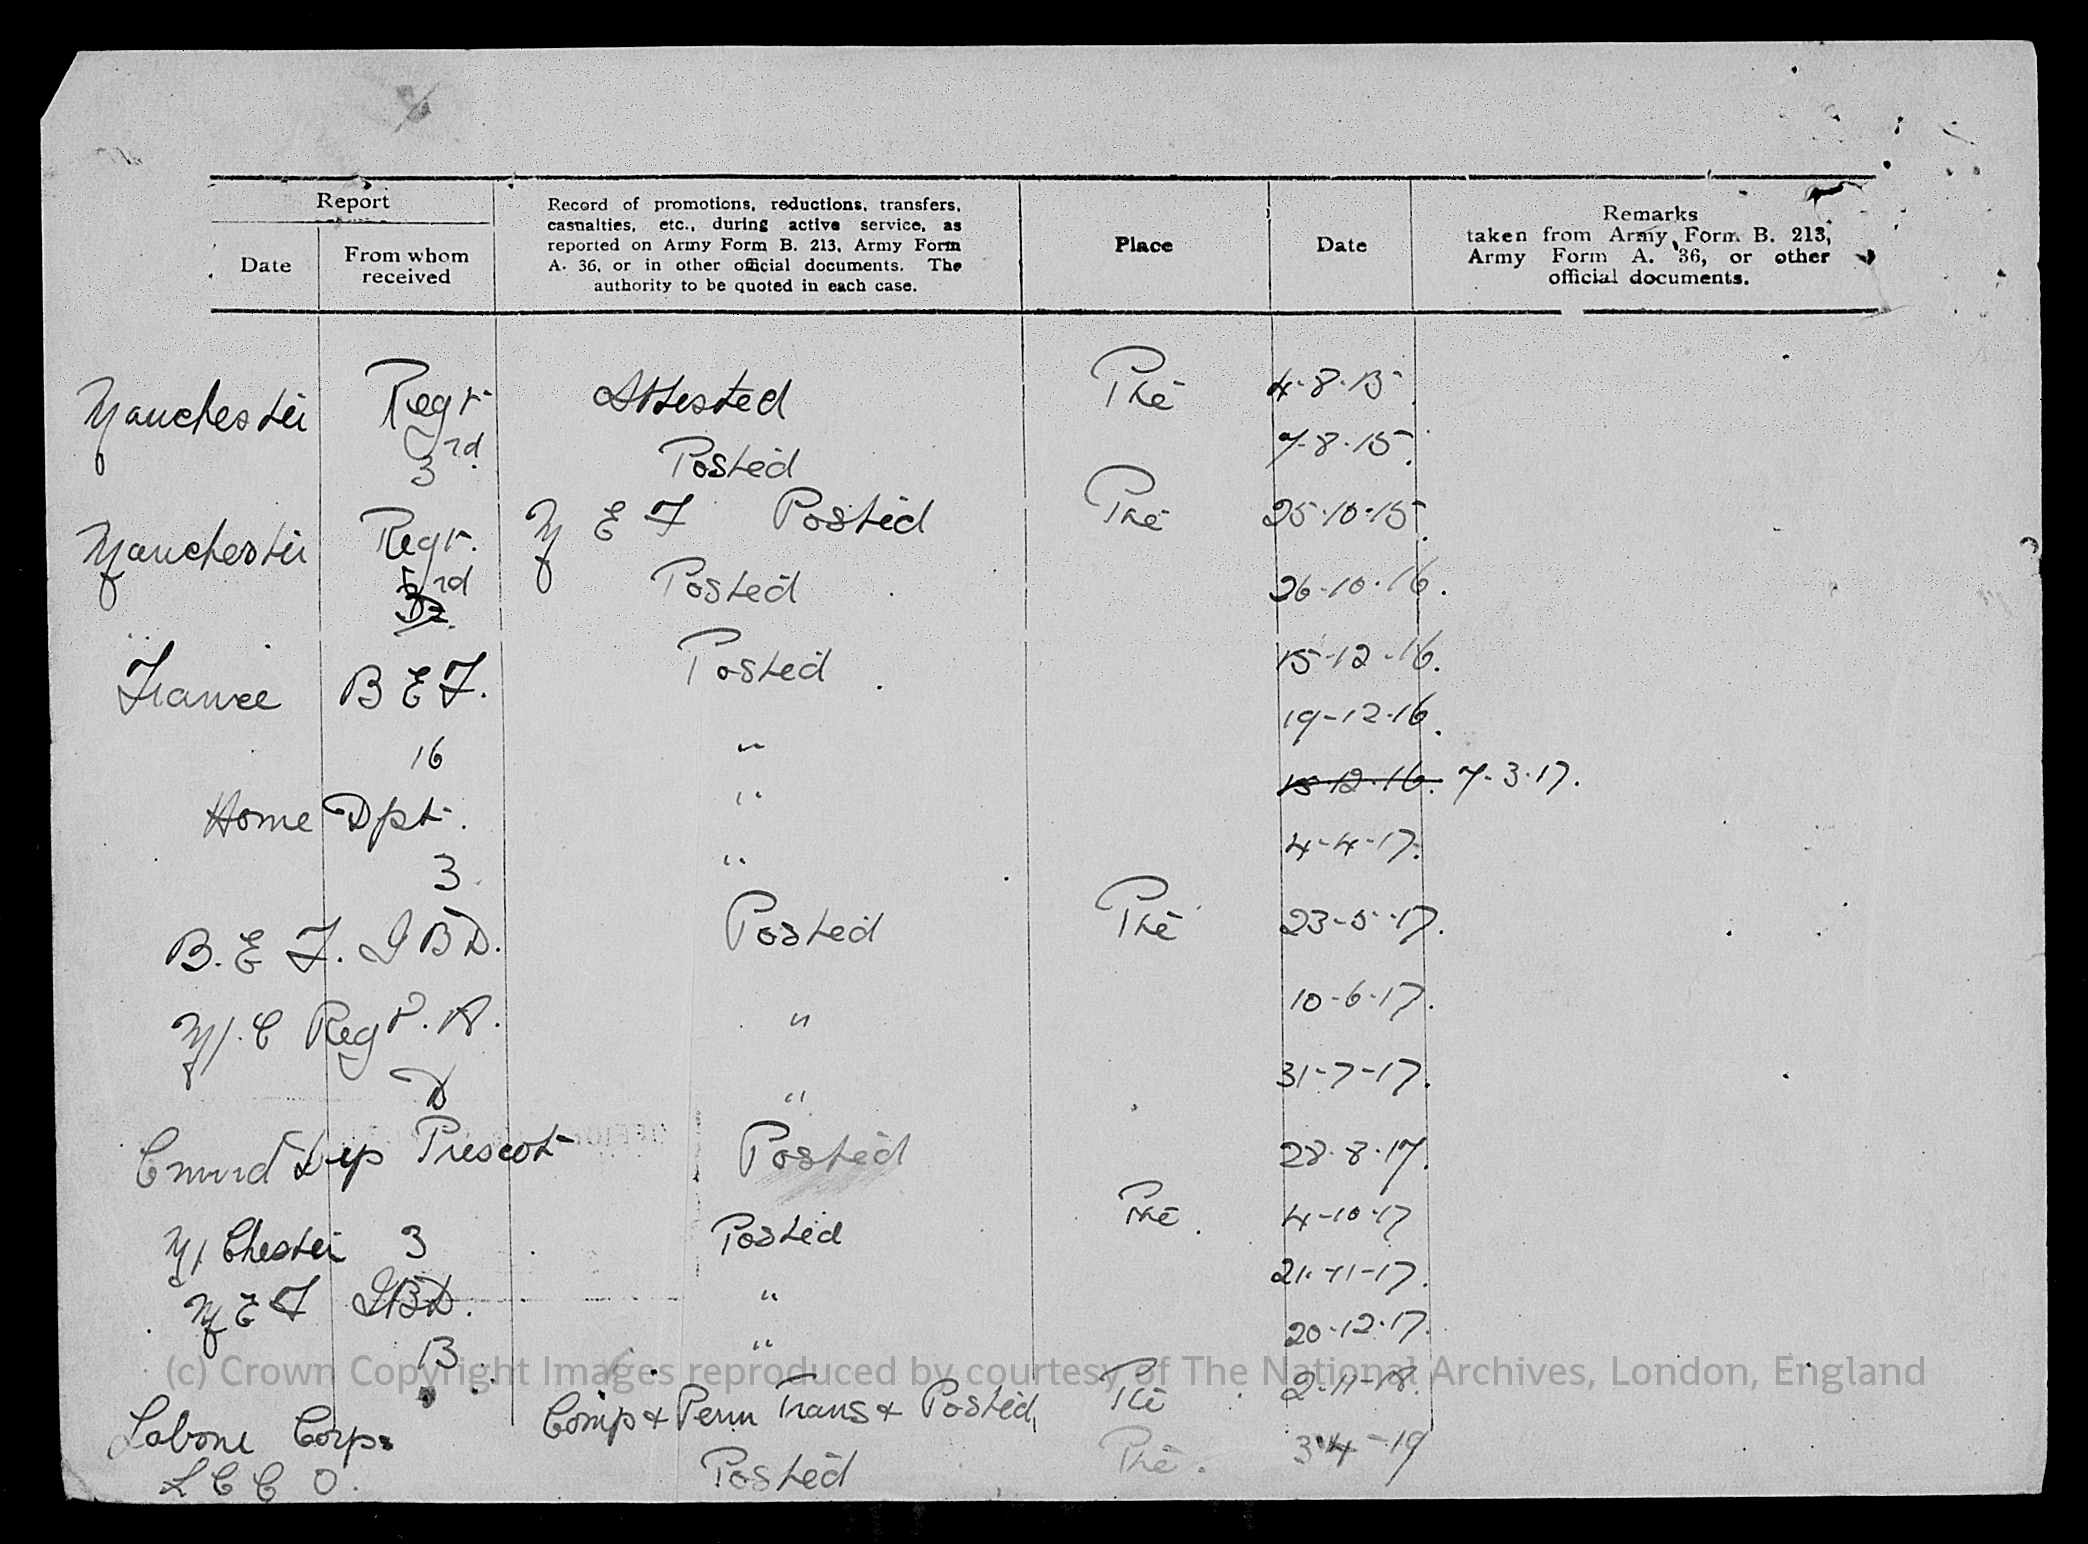 Report
Date
From whom received
Record of promotions, reductions, transfers, casualties, etc., during active service, as reported on Army Form B. 213, Army Form A. 36, or in other official documents. The authority to be quoted in each case.
Place
Date
Remarks taken from Army Form B. 213, Army Form A. 36, or other official documents.
Manchester Regt. Attested Pte 4-8-15
3rd. Posted 7-8-15.
Manchester Regt. M E F Posted Pte 25-10-15.
3rd Posted 26-10-16.
France B E F. Posted 15-12-16.
16 " 19-12-16.
Home Dpt. " 15-12-16. 7-3-17.
3 " 4-4-17.
B. E F. I B D. Posted Pte 23-5-17.
M/C Regt. A. " 10-6-17.
D " 31-7-17.
Cmmd Dep Prescot Posted 28-8-17.
M/Chester 3 Posted Pte. 4-10-17
M E F I B D. " 21-11-17.
13 " 20-12-17.
Labour Corps Comp & Perm Trans & Posted, Pte 2-11-18.
L C C O. Posted Pte. 3-4-19
(c) Crown Copyright Images reproduced by courtesy of The National Archives, London, England